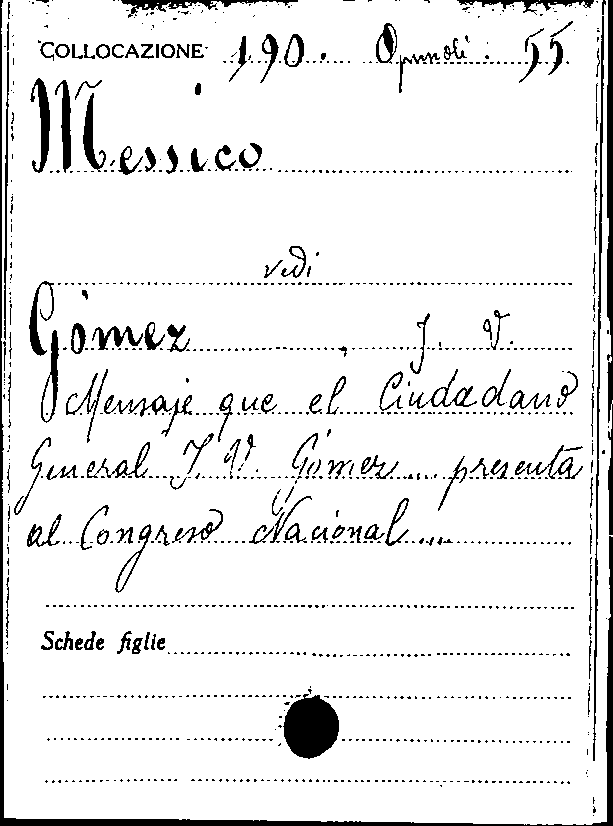 COLLOCAZIONE 190. Opuscoli. 55
Messico
vedi
Gómez, J. V.
Mensaje que el Ciudadano
General J. V. Gómez... presenta
al Congreso Nacional....
Schede figlie